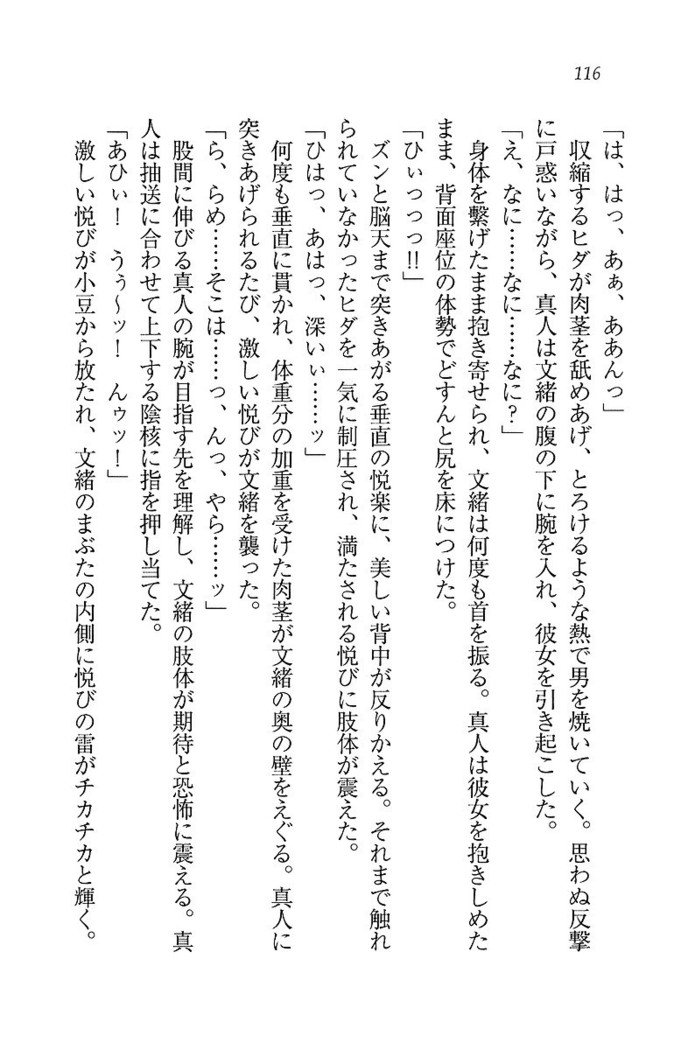 116
「は、はっ、あぁ、ああんっ」
収縮するヒダが肉茎を舐めあげ、とろけるような熱で男を焼いていく。思わぬ反撃
に戸惑いながら、真人は文緒の腹の下に腕を入れ、彼女を引き起こした。
「え、なに……なに……なに？」
身体を繋げたまま抱き寄せられ、文緒は何度も首を振る。真人は彼女を抱きしめた
まま、背面座位の体勢でどすんと尻を床につけた。
「ひぃっっっ!!」
ズンと脳天まで突きあがる垂直の悦楽に、美しい背中が反りかえる。それまで触れ
られていなかったヒダを一気に制圧され、満たされる悦びに肢体が震えた。
「ひはっ、あはっ、深いぃ……ッ」
何度も垂直に貫かれ、体重分の加重を受けた肉茎が文緒の奥の壁をえぐる。真人に
突きあげられるたび、激しい悦びが文緒を襲った。
「ら、らめ……そこは……っ、んっ、やら……ッ」
股間に伸びる真人の腕が目指す先を理解し、文緒の肢体が期待と恐怖に震える。真
人は抽送に合わせて上下する陰核に指を押し当てた。
「あひぃ！　うぅ～ッ！　んゥッ！」
激しい悦びが小豆から放たれ、文緒のまぶたの内側に悦びの雷がチカチカと輝く。